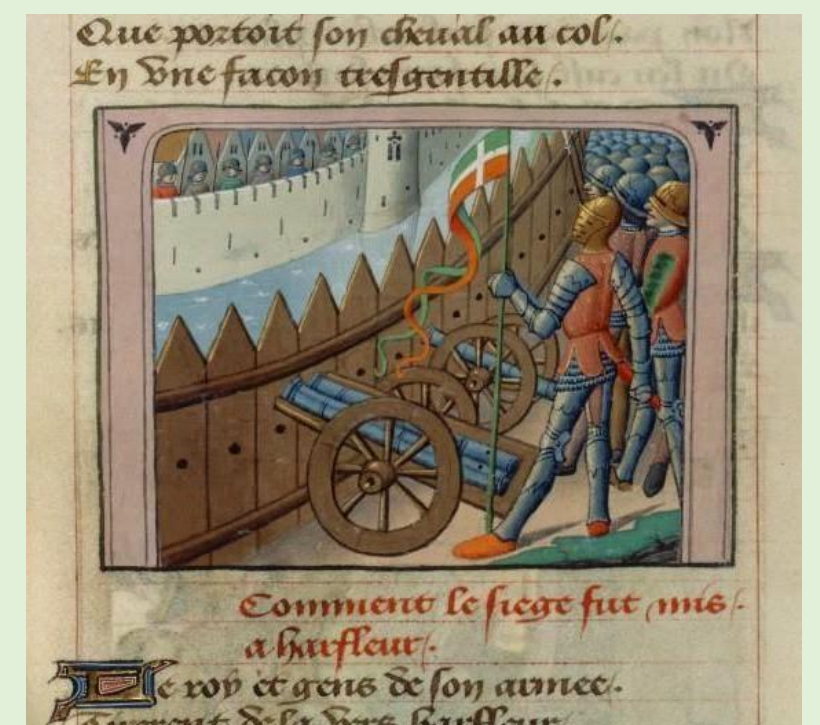 Que portoit son cheval au col.
En vne facon tresgentille.
Comment le siege fut mis
a harfleur.
Le roy et gens de son armee.
de la vers harfleur